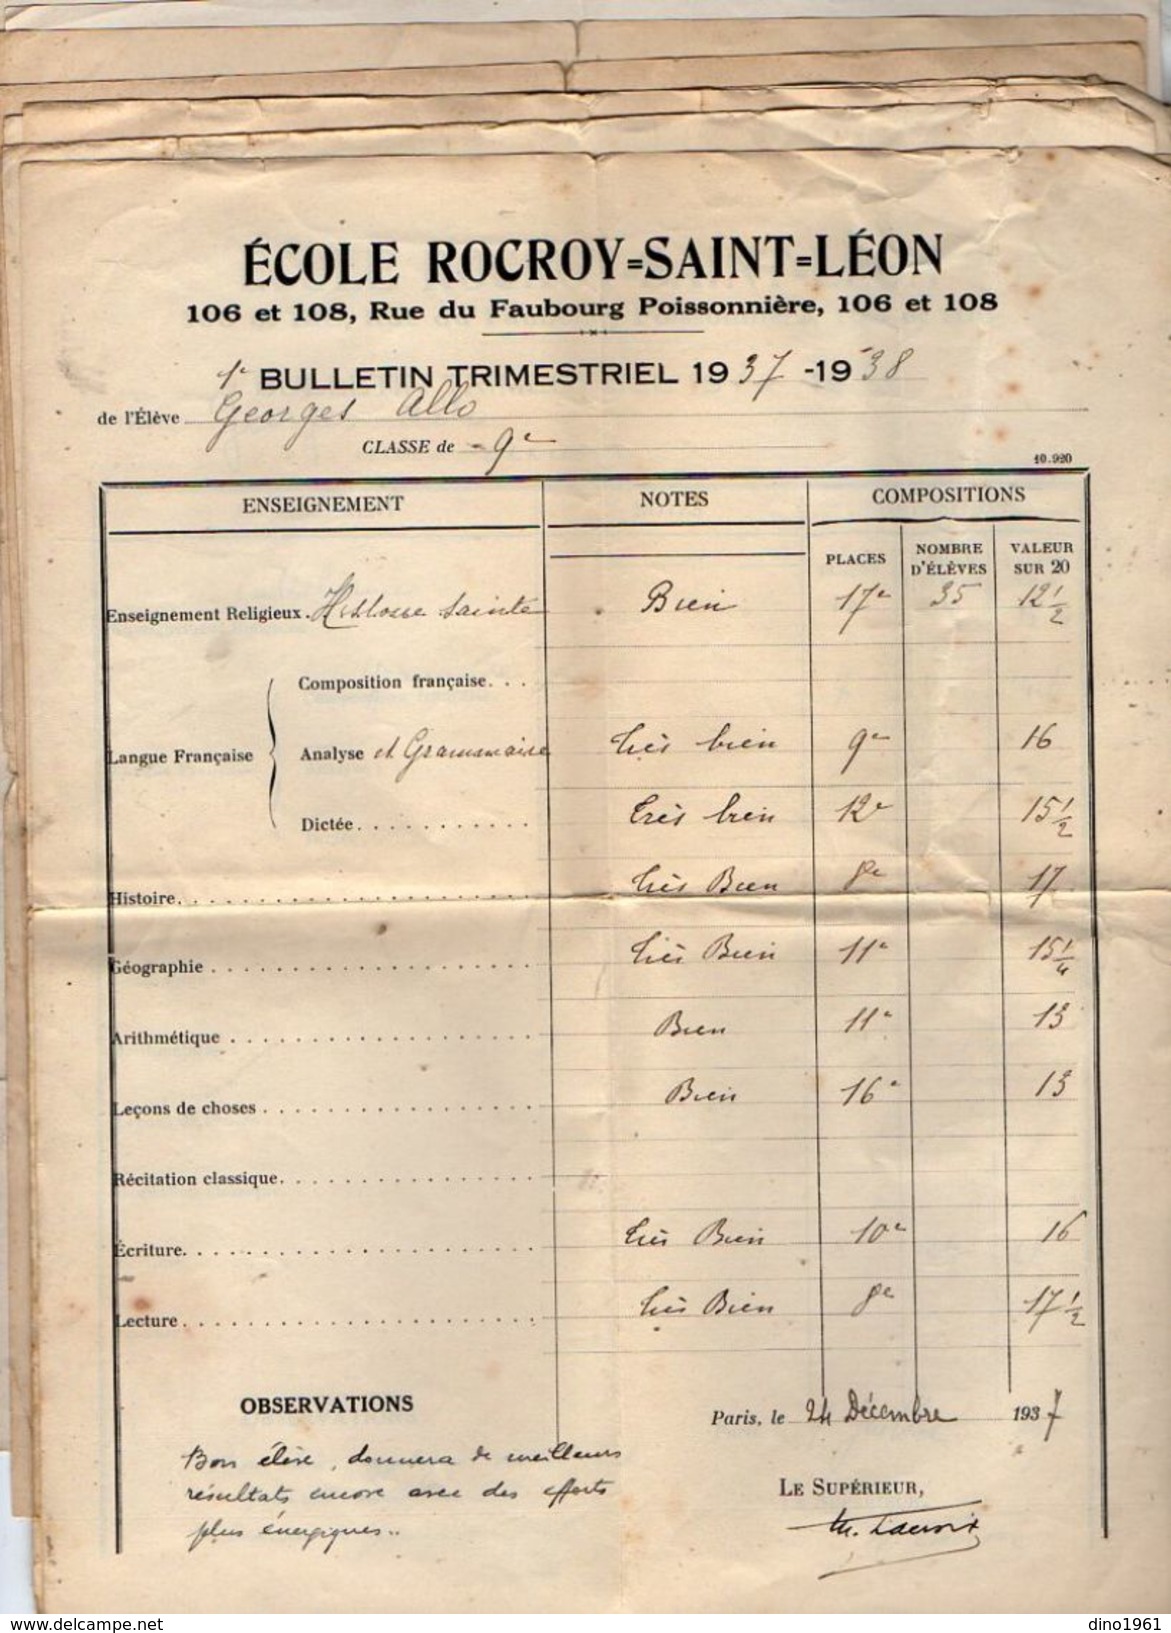 ÉCOLE ROCROY=SAINT=LÉON
106 et 108, Rue du Faubourg Poissonnière, 106 et 108
1e BULLETIN TRIMESTRIEL 1937-1938
de l'Élève Georges Allo
CLASSE de 9e
10.920
ENSEIGNEMENT NOTES COMPOSITIONS
PLACES NOMBRE D'ÉLÈVES VALEUR SUR 20
Enseignement Religieux. Histoire Sainte Bien 17e 35 12 1/2
Composition française. . .
Langue Française Analyse et Grammaire Très bien 9e 16
Dictée. . . . . . . . . . . Très bien 12e 15 1/2
Histoire. . . . . . . . . . . Très Bien 8e 17
Géographie . . . . . . . . . . . Très Bien 11e 15 1/4
Arithmétique . . . . . . . . . . . Bien 11e 13
Leçons de choses . . . . . . . . . . . Bien 16e 13
Récitation classique. . . . . . . . . . .
Écriture. . . . . . . . . . . Très Bien 10e 16
Lecture. . . . . . . . . . . Très Bien 8e 17 1/2
OBSERVATIONS
Bon élève, donnera de meilleurs
résultats encore avec des efforts
plus énergiques..
Paris, le 24 Décembre 1937
LE SUPÉRIEUR,
dino1961
www.delcampe.net